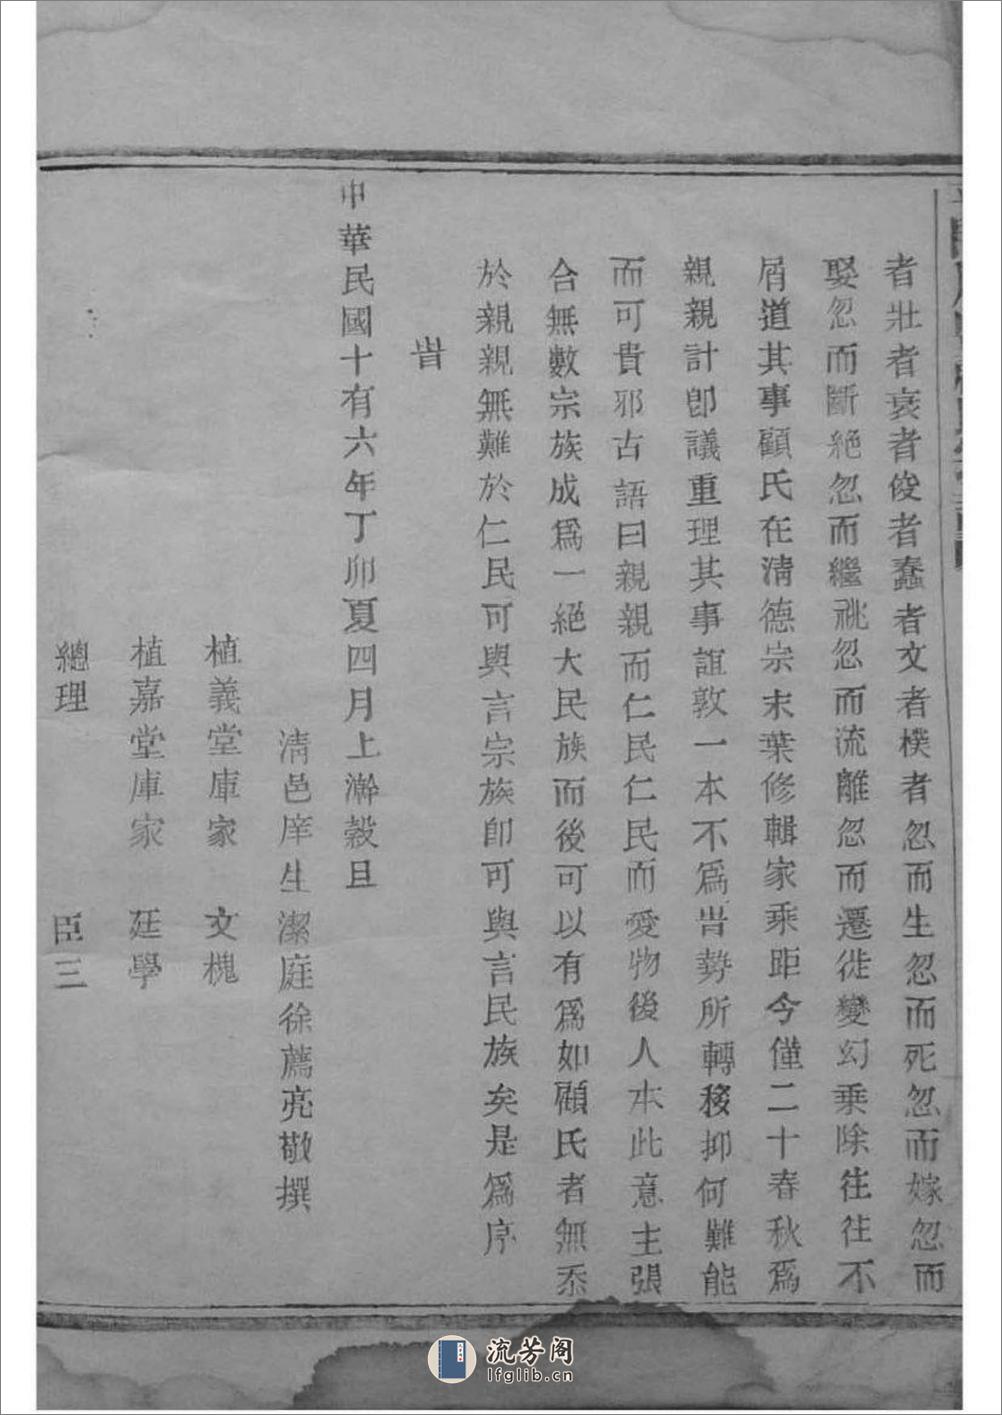 者壯者衰者俊者蠢者文者樸者忽而生忽而死忽而嫁忽而
娶忽而斷絕忽而繼祧忽而流離忽而遷徙變幻乘除往往不
屑道其事顧氏在淸德宗末葉修輯家乘距今僅二十春秋爲
親親計卽議重理其事誼敦一本不爲旹勢所轉移抑何難能
而可貴邪古語曰親親而仁民仁民而愛物後人本此意主張
合無數宗族成爲一絕大民族而後可以有爲如顧氏者無忝
於親親無難於仁民可與言宗族卽可與言民族矣是爲序
旹
中華民國十有六年丁卯夏四月上澣穀旦
淸邑庠生潔庭徐薦亮敬撰
植義堂庫家 文槐
植嘉堂庫家 廷學
總理 臣三
流芳阁
lfglib.cn